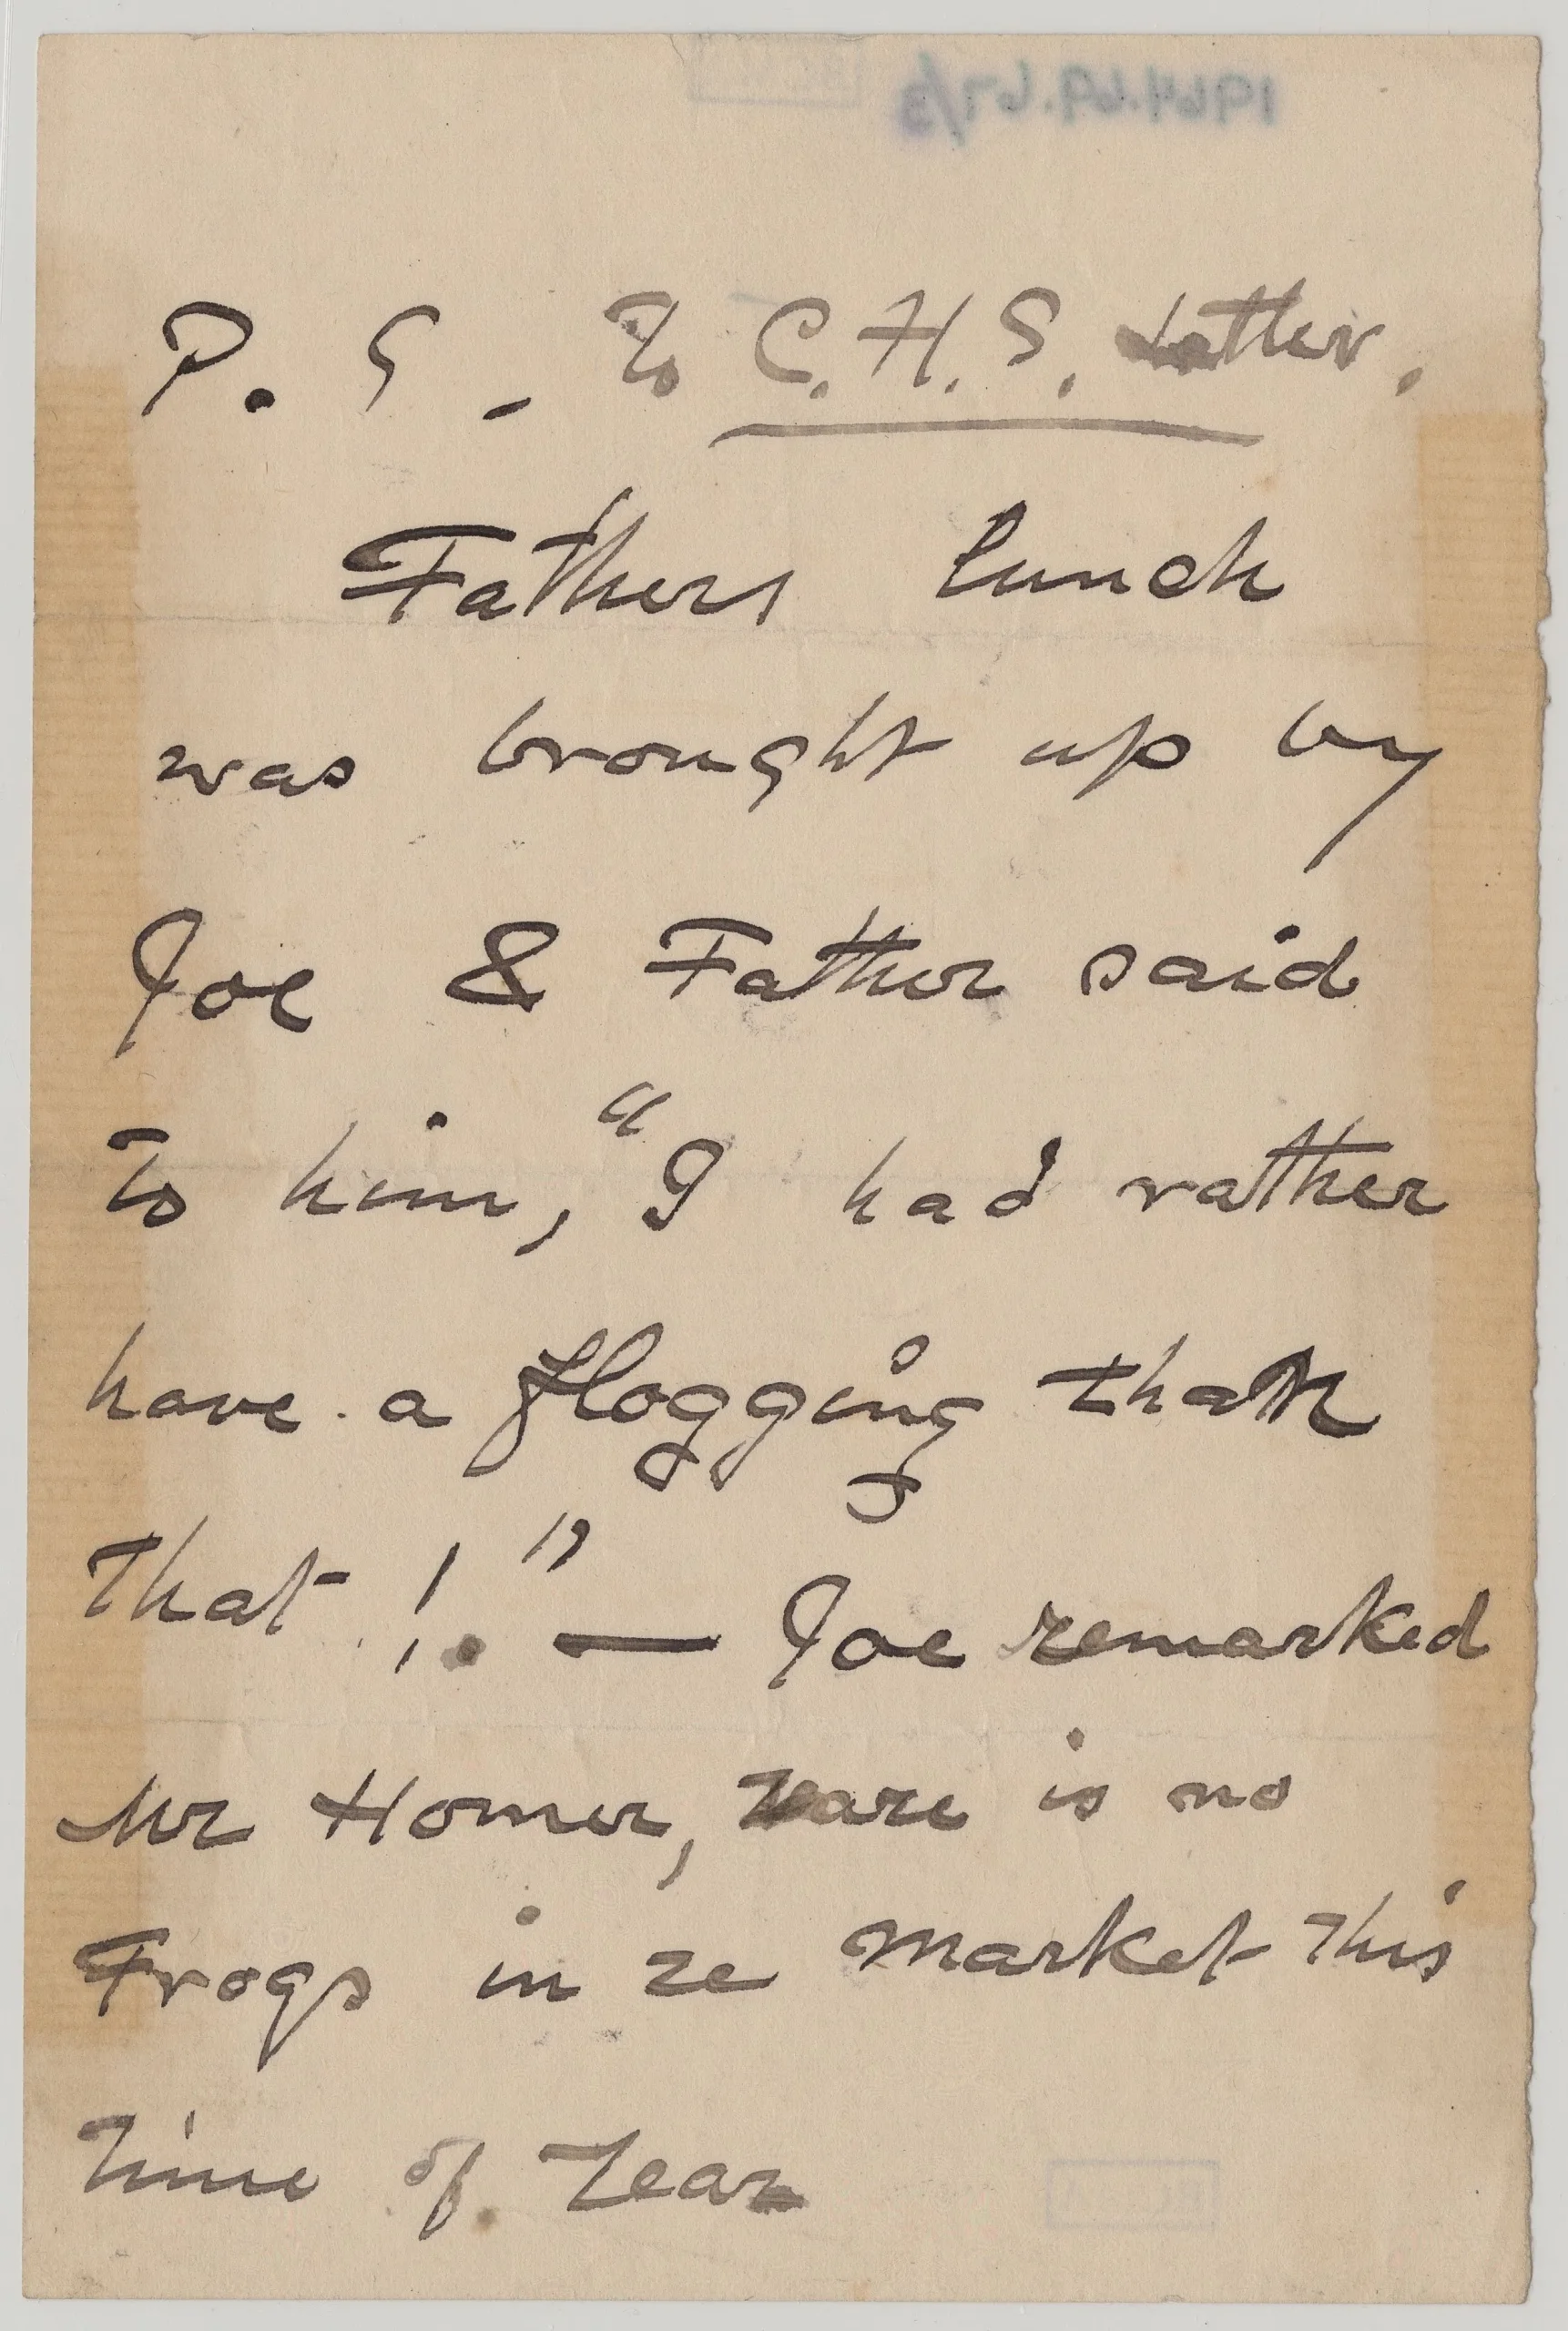 1964.69.67/3
P. S - To C. H. S. Letter.
Fathers lunch
was brought up by
Joe & Father said
To him, "I had rather
have a flogging than
That !." — Joe remarked
Mr Homer, Zare is no
Frogs in ze market This
Time of Zear